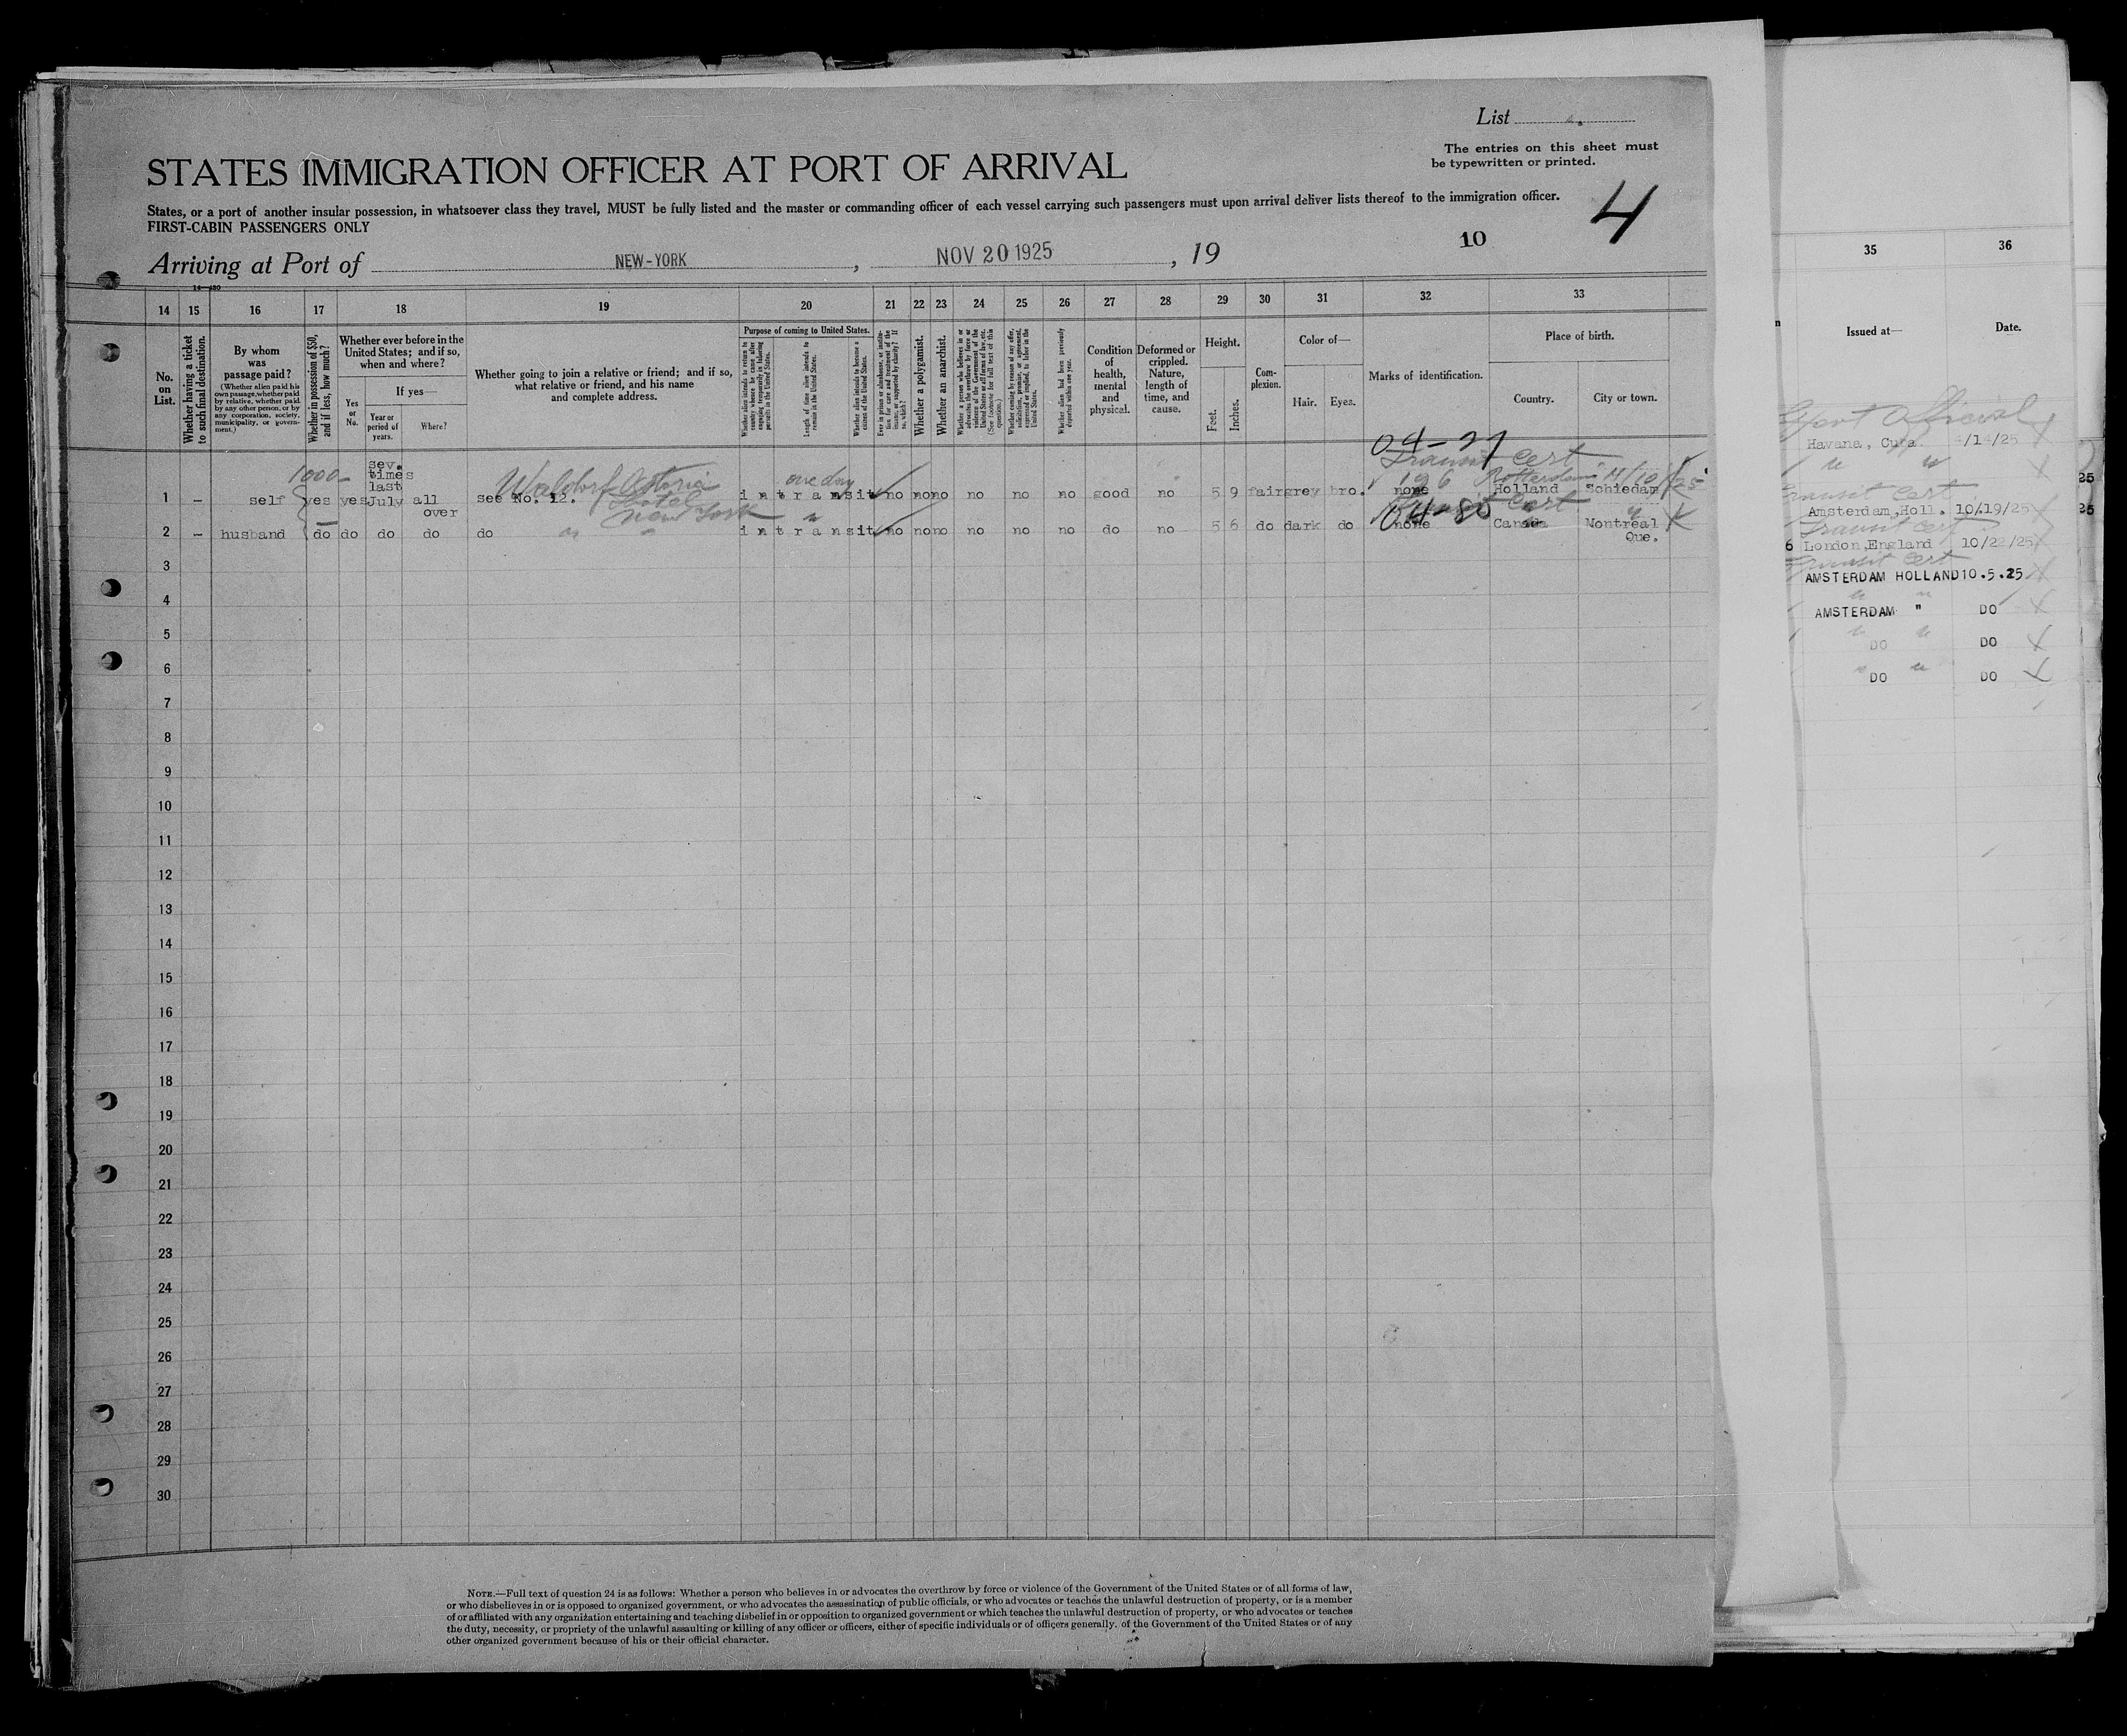 List
The entries on this sheet must
be typewritten or printed.
STATES IMMIGRATION OFFICER AT PORT OF ARRIVAL
4
States, or a port of another insular possession, in whatsoever class they travel, MUST be fully listed and the master or commanding officer of each vessel carrying such passengers must upon arrival deliver lists thereof to the immigration officer.
FIRST-CABIN PASSENGERS ONLY
10
Arriving at Port of NEW-YORK, NOV 20 1925, 19
14 15 16 17 18 19 20 21 22 23 24 25 26 27 28 29 30 31 32 33
No. on List.
Whether having a ticket to such final destination.
By whom was passage paid?
(Whether alien paid his own passage, whether paid by relative, whether paid by any other person, or by any corporation, society, municipality, or government.)
Whether in possession of $50, and if less, how much?
Whether ever before in the United States; and if so, when and where?
Yes or No.
If yes—
Year or period of years.
Where?
Whether going to join a relative or friend; and if so, what relative or friend, and his name and complete address.
Purpose of coming to United States.
Whether alien intends to return to country whence he came after engaging temporarily in laboring pursuits in the United States.
Length of time alien intends to remain in the United States.
Whether alien intends to become a citizen of the United States.
Ever in prison or almshouse, or institution for care and treatment of the insane, or supported by charity? If so, which?
Whether a polygamist.
Whether an anarchist.
Whether coming by reason of any offer, solicitation, promise, or agreement, expressed or implied, to labor in the United States.
Whether alien had been previously deported within one year.
Condition of health, mental and physical.
Deformed or crippled. Nature, length of time, and cause.
Height.
Feet.
Inches.
Complexion.
Color of—
Hair.
Eyes.
Marks of identification.
Place of birth.
Country.
City or town.
04-27
Transit Cert
1000-
sev. times last
Waldorf Astoria Hotel New York
one day
196 Rotterdam 11/10/25
1 – self yes yes July all over see No. 12. in transit no no no no no no good no 5 9 fair grey bro. none Holland Schiedam
04-80
Transit Cert
2 – husband do do do do do in transit no no no no no no do no 5 6 do dark do none Canada Montreal Que.
3
4
5
6
7
8
9
10
11
12
13
14
15
16
17
18
19
20
21
22
23
24
25
26
27
28
29
30
NOTE.—Full text of question 24 is as follows: Whether a person who believes in or advocates the overthrow by force or violence of the Government of the United States or of all forms of law,
or who disbelieves in or is opposed to organized government, or who advocates the assassination of public officials, or who advocates or teaches the unlawful destruction of property, or is a member
of or affiliated with any organization entertaining and teaching disbelief in or opposition to organized government or which teaches the unlawful destruction of property, or who advocates or teaches
the duty, necessity, or propriety of the unlawful assaulting or killing of any officer or officers, either of specific individuals or of officers generally. of the Government of the United States or of any
other organized government because of his or their official character.
35 36
Issued at— Date.
Official
Havana, Cuba. 4/14/25
Transit Cert
Amsterdam, Holl. 10/19/25
Transit Cert
6 London, England 10/22/25
Transit Cert
AMSTERDAM HOLLAND 10.5.25
AMSTERDAM " DO
DO DO
DO DO
25
25